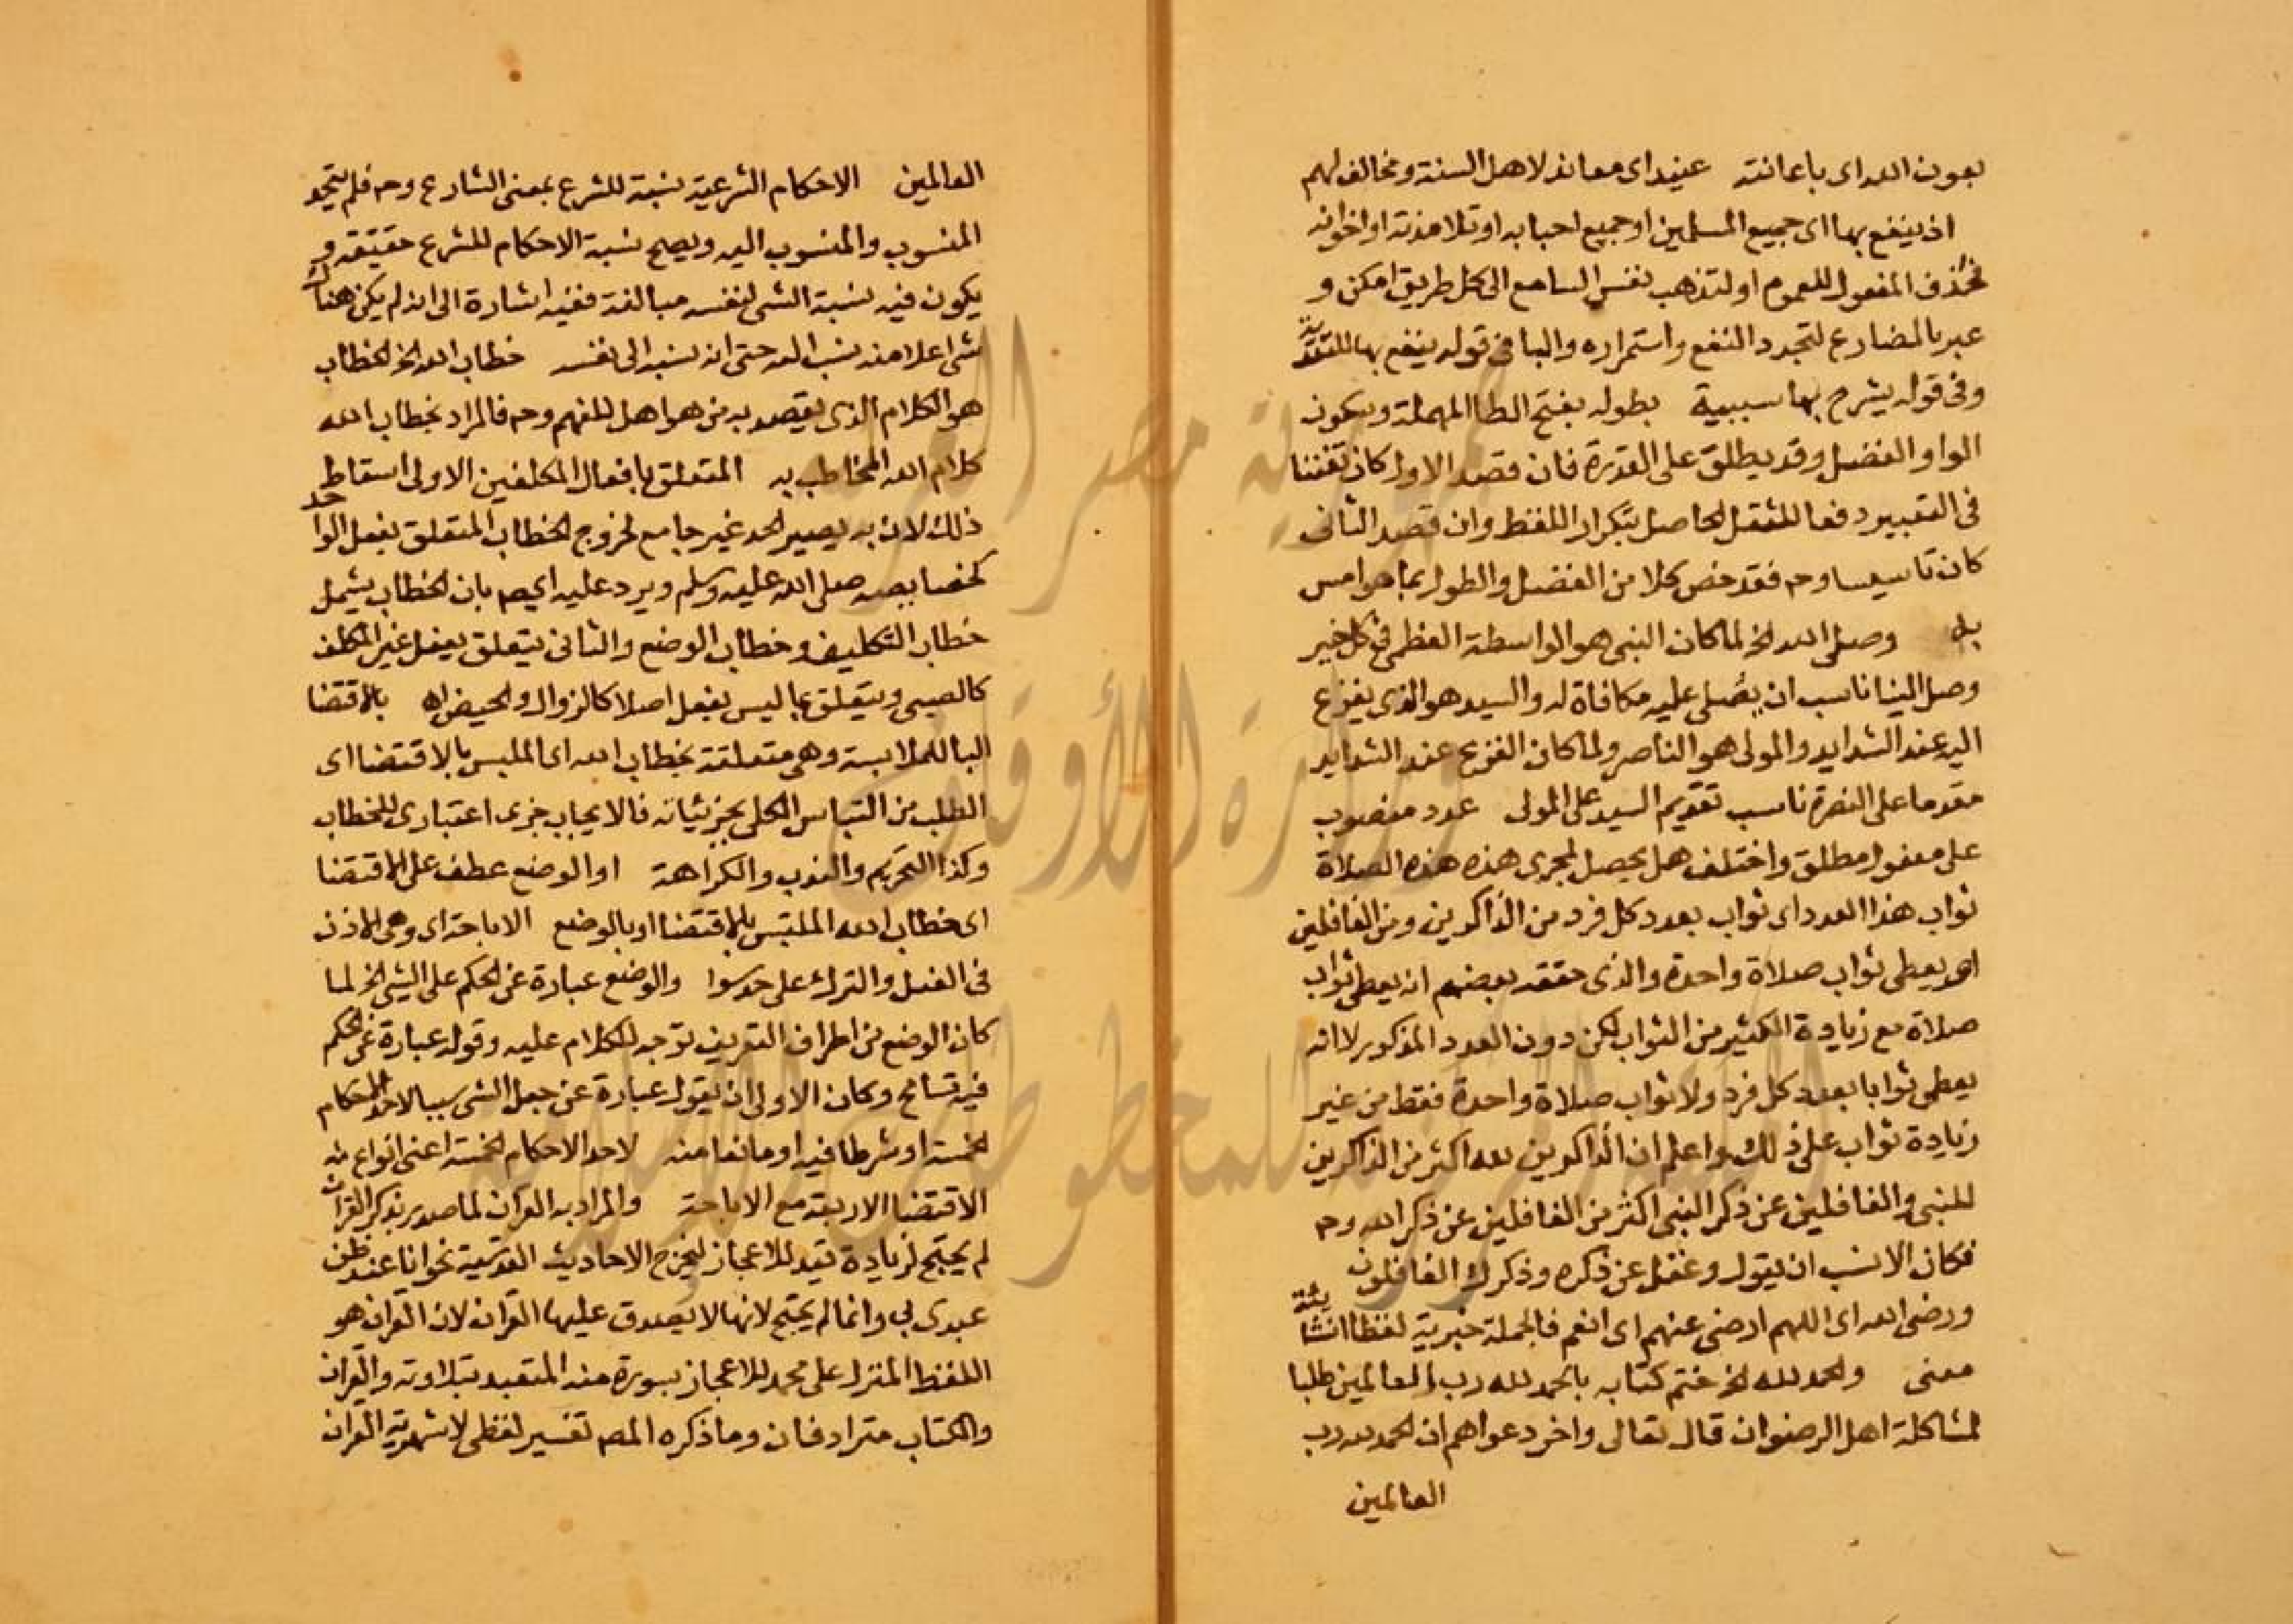 بعون الله اى باعانته عنيد اى معاند لاهل السنة ومخالف لهم
ان ينفع بها اى جميع المسلمين او جميع احبابه او تلامذته او اخوانه
فحذف المفعول للعموم او لتذهب نفس السامع الى كل طريق امكن و
عبر بالمضارع لتجدد النفع واستمراره والبا فى قوله ينفع بها للتعدية
وفى قوله يشرح بها سببية بطوله بفتح الطا المهملة وسكون
الواو الفضل وقد يطلق على القدرة فان قصد الاول كان تفننا
فى التعبير دفعا للثقل الحاصل بتكرار اللفظ وان قصد الثانى
كان تاسيسا وح فقد خص كلا من الفضل والطول بما هو امس
به وصلى الله الخ لما كان النبى هو الواسطة العظمى فى كل خير
وصل الينا ناسب ان يصلى عليه مكافاة له والسيد هو الذى يفزع
اليه عند الشدايد والمولى هو الناصر ولما كان الفزع عند الشدايد
مقدما على النصرة ناسب تقديم السيد على المولى عدد منصوب
على مفعول مطلق واختلف هل يحصل لمجرى هذه هذه الصلاة
ثواب هذا العدد اى ثواب بعدد كل فرد من الذاكرين ومن الغافلين
او يعطى ثواب صلاة واحدة والذى حققه بعضهم انه يعطى ثواب
صلاة مع زيادة الكثير من الثواب لكن دون العدد المذكور لا انه
يعطى ثوابا بعدد كل فرد ولا ثواب صلاة واحدة فقط من غير
زيادة ثواب على ذلك واعلم ان الذاكرين لله اكثر من الذاكرين
للنبى والغافلين عن ذكر النبى اكثر من الغافلين عن ذكر الله وح
فكان الانسب ان يقول وغفل عن ذكره وذكرك الغافلون
ورضى الله اى اللهم ارضى عنهم اى انعم فالجملة خبرية لفظا انشائية
معنى والحمد لله الخ ختم كتابه بالحمد لله رب العالمين طلبا
لمشاكلة اهل الرضوان قال تعالى واخر دعواهم ان الحمد لله رب
العالمين
العالمين الاحكام الشرعية نسبة للشرع بمعنى الشارع وح فلم يتحد
المنسوب والمنسوب اليه ويصح نسبة الاحكام للشرع حقيقة و
يكون فيه نسبة الشى لنفسه مبالغة ففيه اشارة الى انه لم يكن هناك
شى اعلا منه ينسب اله حتى انه نسبه الى نفسه خطاب الله الخ الخطاب
هو الكلام الذى يقصد به من هو اهل للفهم وح فالمراد بخطاب الله
كلام الله المخاطب به المتعلق بافعال المكلفين الاولى اسقاط
ذلك لان به يصير الحد غير جامع لخروج الخطاب المتعلق بفعل الواحد
كخصايصه صلى الله عليه وسلم ويرد عليه ايضا بان الخطاب يشمل
خطاب التكليف وخطاب الوضع والثانى يتعلق بفعل غير المكلف
كالصبى ويتعلق بما ليس بفعل اصلا كالزوال والحيض اه بالاقتضا
البا للملابسة وهى متعلقة بخطاب الله اى الملبس بالاقتضا اى
الطلب من التباس الكلى بجزئياته فالايجاب جزى اعتبارى للخطاب
وكذا التحريم والندب والكراهة او الوضع عطف على الاقتضا
اى خطاب الله الملتبس بالاقتضا او بالوضع الاباحة اى وهى الاذن
فى الفعل والترك على حد سوا والوضع عبارة عن الحكم على الشى الخ لما
كان الوضع من اطراف التعريف توجه للكلام عليه وقوله عبارة عن الحكم
فيه تسامح وكان الاولى ان يقول عبارة عن جعل الشى سببا لاحد الاحكام
الخمسة او شرطا فيه او مانعا منه لاحد الاحكام الخمسة اعنى انواع
الاقتضا الاربعة مع الاباحة والمراد به القران لما صدر بذكر القران
لم يحتج لزيادة قيد للاعجاز ليخرج الاحاديث القدسية نحو انا عند ظن
عبدى بى وانما لم يحتج لانها لا يصدق عليها القران لان القران هو
اللفظ المنزل على محمد للاعجاز بسورة منه المتعبد بتلاوته والقران
والكتاب مترادفان وما ذكره المص تفسير لفظى لاشهرية القران